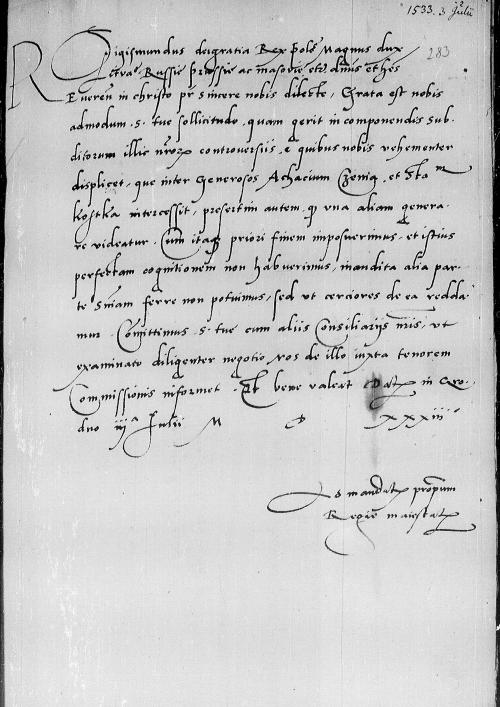 1533. 3 Julii
283
Sigismundus dei gratia Rex Polo. Magnus dux
Russie Prussie ac masovie etc. dns et hes
Reveren in christo pr sincere nobis dilecte, Grata est nobis
admodum . S . tue sollicitudo, quam gerit in componendis sub-
ditorum illic nror controversiis, e quibus nobis vehementer
displicet, que inter Generosos Achacium et Sta
kostka intercessit, presertim autem, q una aliam genera-
re videatur. Cum itaq priori finem imposuerimus, et istius
perfectam cognitionem non habuerimus, inaudita alia par-
te sniam ferre non potuimus, sed ut cerciores de ea redda
mur. Comittimus . S . tue cum aliis Consiliariis nris, ut
examinato diligenter negotio, nos de illo iuxta tenorem
Commissionis informet. Et bene valeat Dat in Cro-
iii a Julii M D XXXiii o
mandat proprium
Regie maiestat